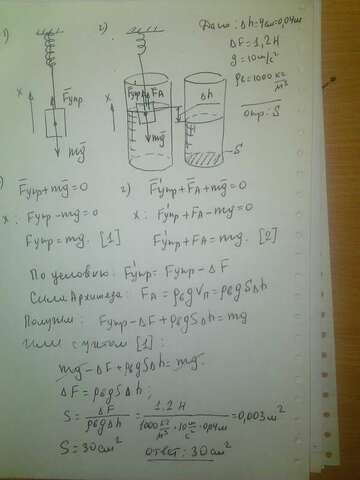 1)
2)
Дано: Δh=4см=0,04м
ΔF=1,2Н
g=10м/с²
ρв=1000 кг/м³
Опр: S
x
F̄упр
mḡ
x
F̄упр F̄A
mḡ
Δh
S
F̄упр+mḡ=0
x: Fупр-mg=0
Fупр=mg. [1]
2) F̄'упр+F̄A+mḡ=0
x: F'упр+FA-mg=0
F'упр+FA=mg. [2]
По условию: F'упр=Fупр-ΔF
Сила Архимеда: FA=ρвgVп=ρвgSΔh
Получим: Fупр-ΔF+ρвgSΔh=mg
Или с учетом [1]:
mg-ΔF+ρвgSΔh=mg.
ΔF=ρвgSΔh;
S=ΔF/ρвgΔh=1,2Н/1000 кг/м³·10 м/с²·0,04м=0,003м²
S=30см²
Ответ: 30см²